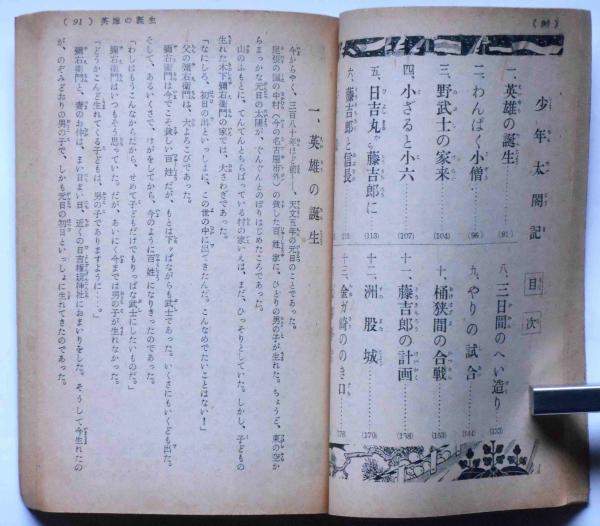 少年太閤記
目次
一、英雄の誕生 (91)
二、わんぱく小僧 (96)
三、野武士の家来 (104)
四、小ざると小六 (107)
五、日吉丸から藤吉郎に (113)
六、藤吉郎と信長
八、三日間のへい造り (133)
九、やりの試合 (144)
十、桶狭間の合戦 (153)
十一、藤吉郎の計画 (158)
十二、洲股城 (170)
十三、金ガ崎ののき口 178
(91) 英雄の誕生
一、英雄の誕生
今からやく、三百八十年ほど前――、天文五年の元日のことであった。
尾張の国の中村(今の名古屋市外)の貧した百姓家に、ひとりの男の子が生れた。ちょうど、東の空か
らまっかな元日の太陽が、ぐんぐんとのぼりはじめたころであった。
山のふもとに、てんてんとちらばっている村の家いえは、まだ、ひっそりとしていた。しかし、子どもの
生れた木下彌右衞門の家では、大さわぎであった。
「なにしろ、初日の出といっしょに、この世の中に出てきたんだ。こんなめでたいことはない!」
父の彌右衞門は、大よろこびであった。
彌右衞門は今でこそ貧しい百姓だが、もとは下っぱながらも武士であった。いくさにもいくども出た。
そして、あるいくさで、けがをしてから、今のように百姓になりきったのであった。
「わしはもうこんなからだから、せめて子どもだけでもりっぱな武士にしたいものだ。」
彌右衞門はいつもそう思っていた。だが、あいにく、今までは男の子が生れなかった。
「どうかこんど生れてくる子どもは、男の子でありますように……。」
彌右衞門と、妻のお仲は、まい日まい日、近くの日吉権現神社におまいりをした。そうして今生れたの
が、のぞみどおりの男の子で、しかも元日の初日といっしょに生れてきたのであった。